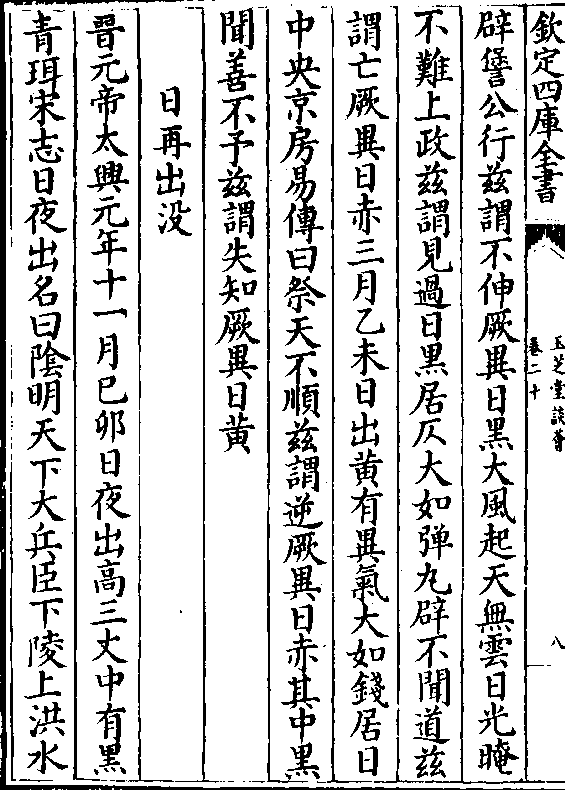 欽定四庫全書
玉芝堂談薈
卷二十
八
辟𠎝公行兹謂不伸厥異日黑大風起天無雲日光晻
不難上政兹謂見過日黒居仄大如弹丸辟不聞道兹
謂亡厥異日赤三月乙未日出黄有異氣大如錢居日
中央京房易傳曰祭天不順兹謂逆厥異日赤其中黒
聞善不予兹謂失知厥異日黄
日再出没
晉元帝太興元年十一月巳卯日夜出高三丈中有黒
青珥宋志日夜出名曰隂明天下大兵臣下陵上洪水